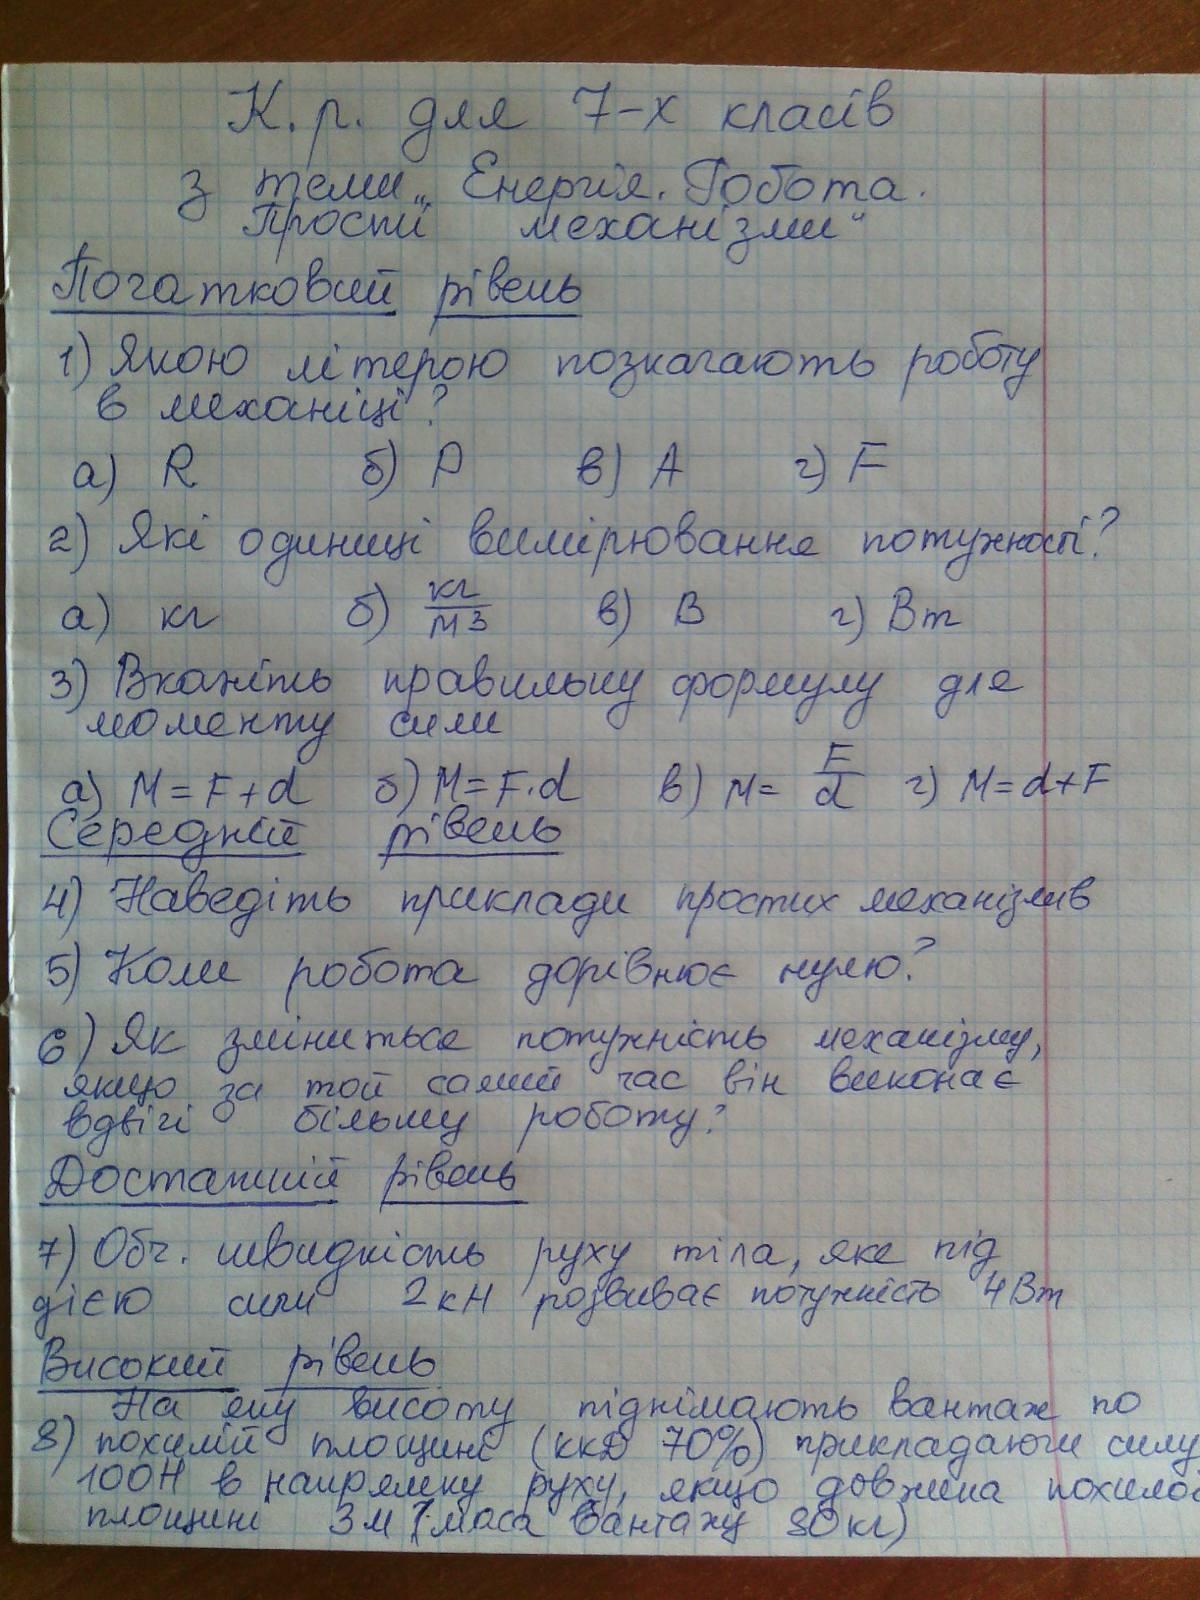 К. р. для 7-х класів
з теми „Енергія. Робота.
Прості механізми“
Початковий рівень
1) Якою літерою позначають роботу
в механіці?
а) R б) P в) A г) F
2) Які одиниці вимірювання потужності?
а) кг б) кг/м3 в) В г) Вт
3) Вкажіть правильну формулу для
моменту сили
а) M = F + d б) M = F · d в) M = F/d г) M = d + F
Середній рівень
4) Наведіть приклади простих механізмів
5) Коли робота дорівнює нулю?
6) Як зміниться потужність механізму,
якщо за той самий час він виконає
вдвічі більшу роботу?
Достатній рівень
7) Обч. швидкість руху тіла, яке під
дією сили 2 кН розвиває потужність 4 Вт
Високий рівень
На яку висоту піднімають вантаж по
8) похилій площині (ккд 70%) прикладаючи силу
100Н в напрямку руху, якщо довжина похилої
площини 3м (маса вантажу 30 кг)